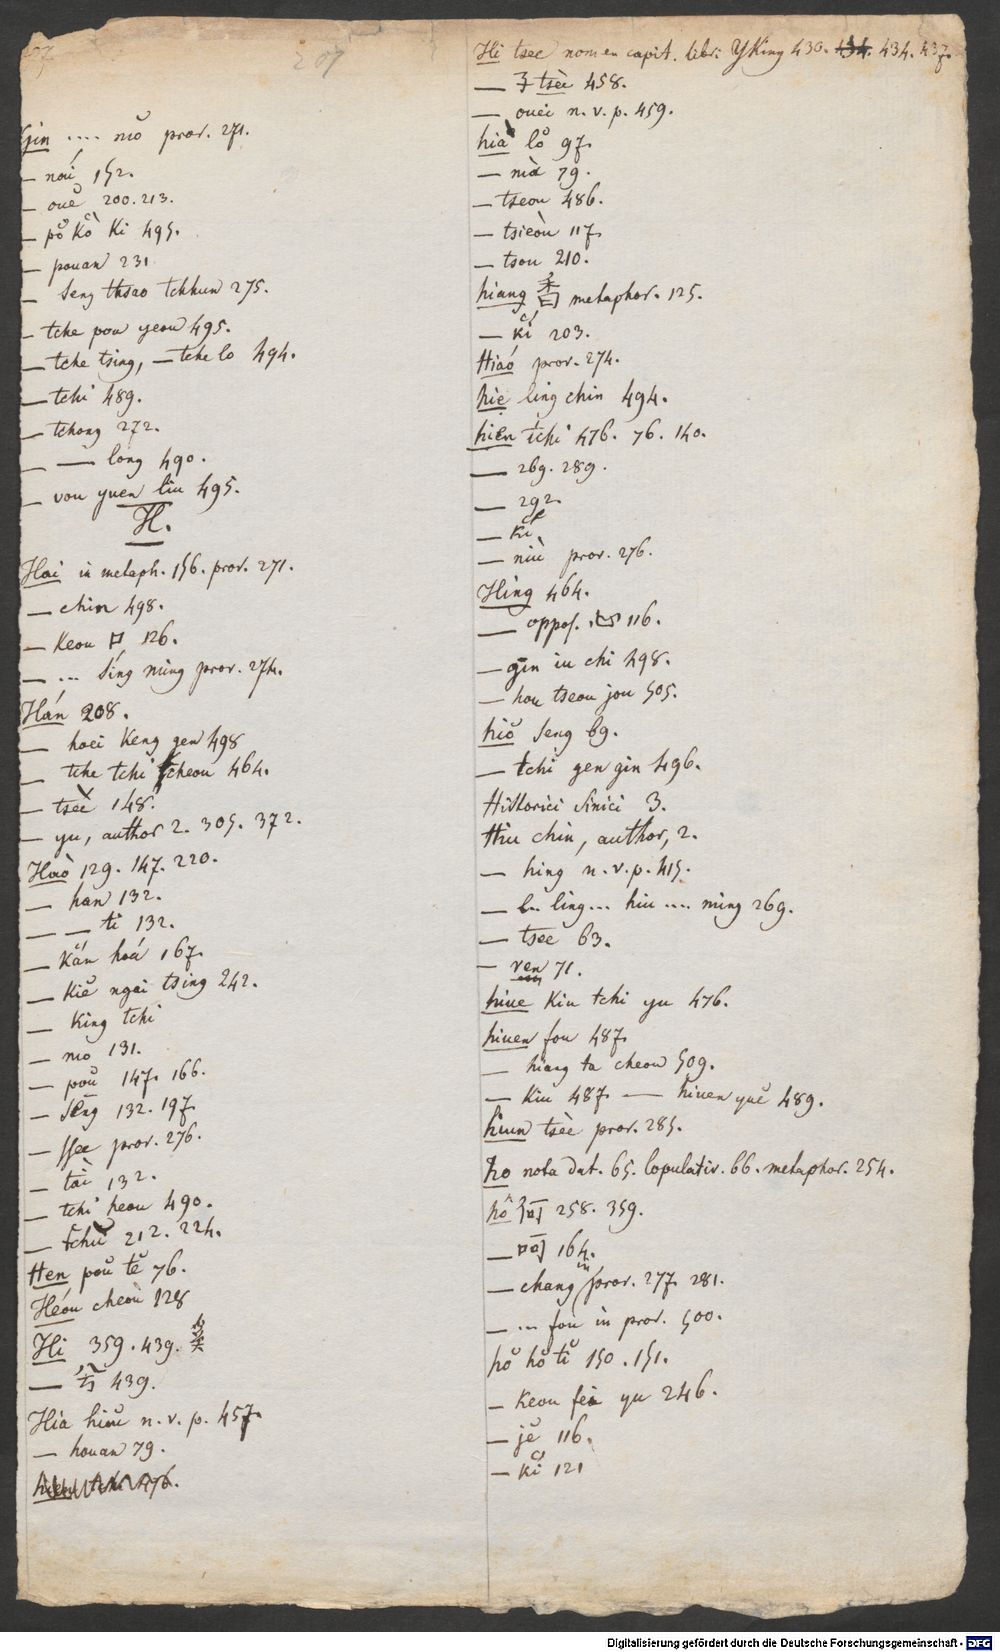 207
Gin .... mŏ prov. 271.
— nai 152.
— ouĕ 200. 213.
— pŏ kŏ ki 495.
— pouan 231
— seng thsao tchhun 275.
— tche pou yeou 495.
— tche tsing, — tche lo 494.
— tchi 489.
— tchong 272.
— — long 490.
— vou yuen liu 495.
H.
Hai in metaph. 156. prov. 271.
— chin 498.
— Keou 口 126.
— ... síng míng prov. 274.
Hán 208.
— hoei Keng gen 498
— tche tchi tcheou 464.
— tsĕe 148.
— yu, author 2. 305. 372.
Haò 129. 147. 220.
— han 132.
— — ti 132.
— Kán hoá 167.
— Kiĕ ngai tsing 242.
— King tchi
— mo 131.
— poŭ 147. 166.
— sēng 132. 197.
— ssee prov. 276.
— tài 132.
— tchi heou 490.
— tchŭ 212. 224.
Hen poŭ tĕ 76.
Héou cheoù 128
Hi 359. 439.
— 439.
Hia hiŏu n. v. p. 457.
— houan 79.
Hi tsee nomen capit. libri YKing 430. 434. 434. 437.
— tsĕe 458.
— ouei n. v. p. 459.
hiă lŏ 97.
— mà 79.
— tseou 486.
— tsieòu 117.
— tsou 210.
hiang 香 metaphor. 125.
— kí 203.
Hiaó prov. 274.
hie ling chin 494.
hien tchi 476. 76. 140.
— 269. 289.
— 292.
— Kí
— niù prov. 276.
Hing 464.
— oppos. 心 116.
— gin iu chi 498.
— hou tseou jou 505.
hiŏ seng 69.
— tchi gen gin 496.
Historici Sinici 3.
Hiu chin, author, 2.
— hing n. v. p. 415.
— l.. ling... hiu .... ming 269.
— tsee 63.
— ven 71.
hiue Kiu tchi yu 476.
hiuen fou 487.
— hiang ta cheou 509.
— Kiu 487. — hiuen yuĕ 489.
hiun tsèe prov. 285.
ho nota dat. 65. Copulativ. 66. metaphor. 254.
hô 何 258. 359.
— 呵 164.
— chang in prov. 277. 281.
— ... fou in prov. 500.
hŏ hŏ tĭ 150. 151.
— Keou fei yu 246.
— jĕ 116.
— kĭ 121
Digitalisierung gefördert durch die Deutsche Forschungsgemeinschaft - DFG